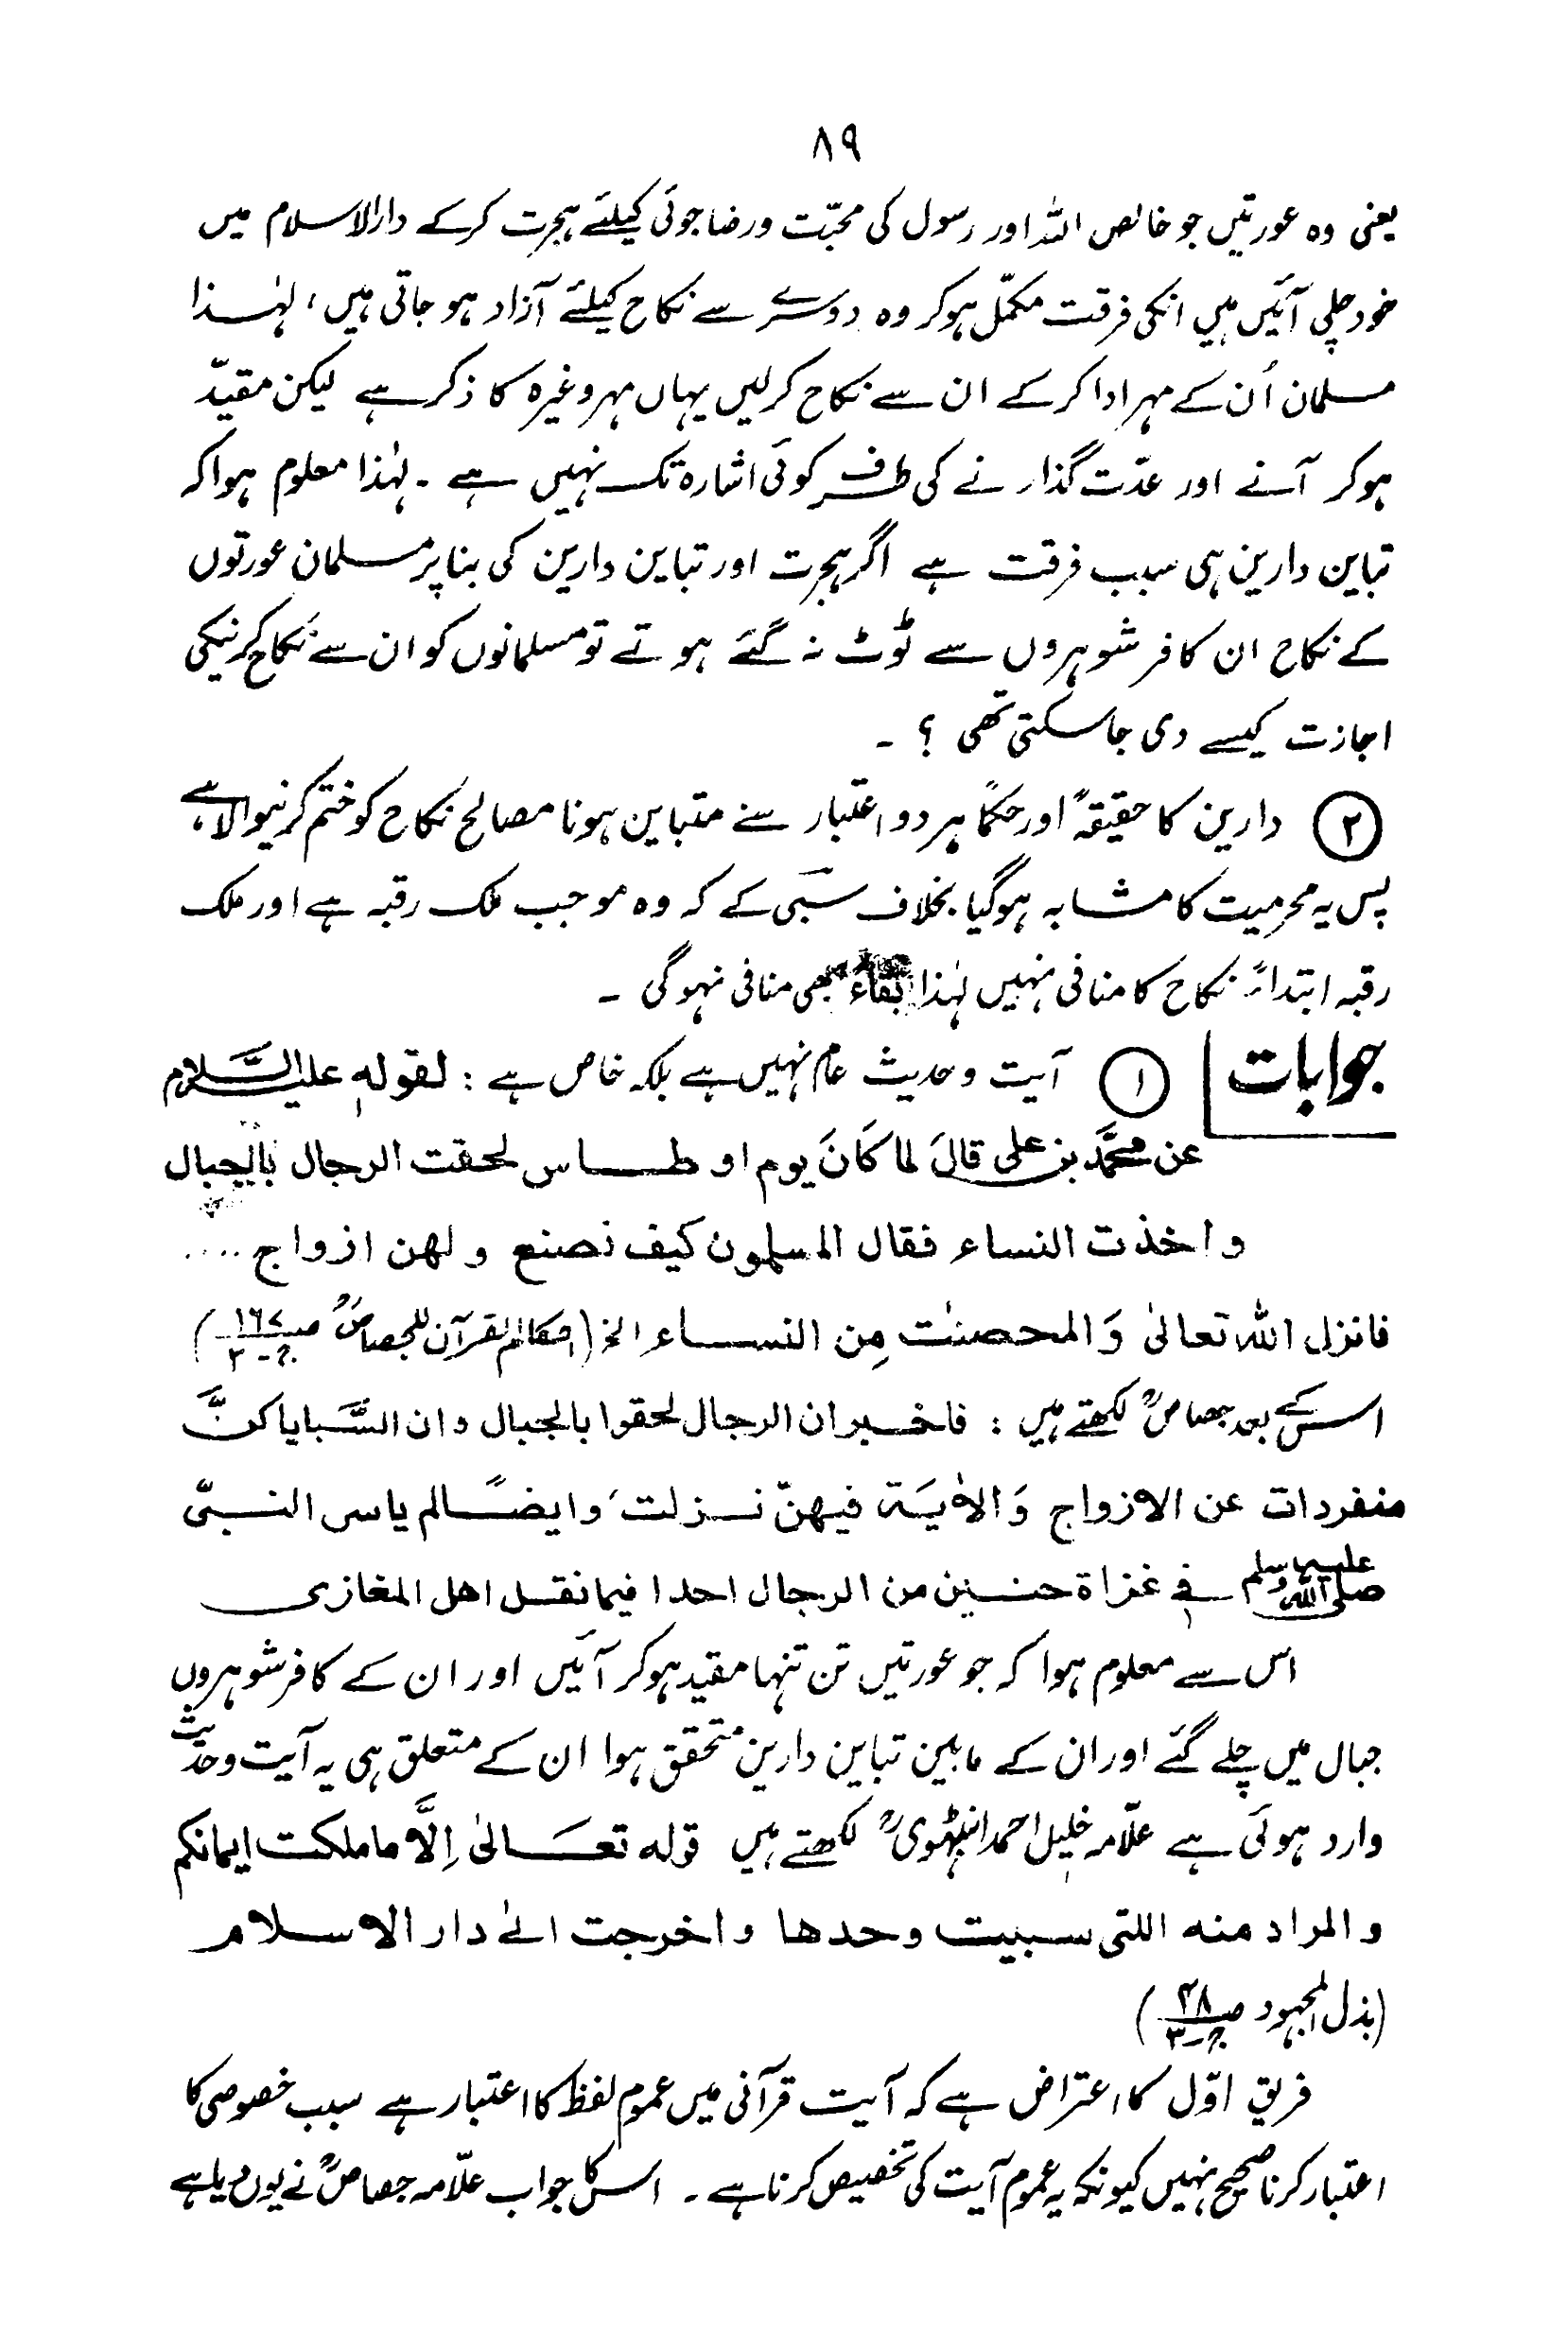 ۸۹
یعنی وہ عورتیں جو خالص اللہ اور رسول کی محبّت ورضا جوئی کیلئے ہجرت کرکے دارالاسلام میں
خود چلی آئیں ہیں انکی فرقت مکمّل ہوکر وہ دوسرے سے نکاح کیلئے آزاد ہو جاتی ہیں، لہٰذا
مسلمان اُن کے مہر ادا کرکے ان سے نکاح کرلیں یہاں مہر وغیرہ کا ذکر ہے لیکن مقیدّ
ہوکر آنے اور عدّت گذارنے کی طرف کوئی اشارہ تک نہیں ہے ۔ لہٰذا معلوم ہوا کہ
تباین دارین ہی سبب فرقت ہے اگر ہجرت اور تباین دارین کی بنا پر مسلمان عورتوں
کے نکاح ان کافر شوہروں سے ٹوٹ نہ گئے ہوتے تو مسلمانوں کو ان سے نکاح کرنیکی
اجازت کیسے دی جاسکتی تھی ؟ ۔
② دارین کا حقیقۃً اور حکمًا ہر دو اعتبار سے متباین ہونا مصالح نکاح کو ختم کرنیوالا ہے
پس یہ محرمیت کا مشابہ ہوگیا بخلاف سَبی کے کہ وہ موجب ملک رقبہ ہے اور ملک
رقبہ ابتداءً نکاح کا منافی نہیں لہٰذا بقاءً بھی منافی نہوگی ۔
جوابات ① آیت وحدیث عام نہیں ہے بلکہ خاص ہے : لقولہٖ علیہ السَّلام
عن محمَّد بن علی قالَ لما کَانَ یوم اوطاس لحقت الرجال بالجبال
واخذت النساء فقال المسلمون کیف نصنع ولھن ازواج ....
فانزل اللہ تعالیٰ وَالمحصنٰت مِن النساء الخ (احکام القرآن للجصاصؒ ص۱۶۷ ج-۲)
اسکے بعد جصاصؒ لکھتے ہیں : فاخبر ان الرجال لحقوا بالجبال وان السَّبایا کنَّ
منفردات عن الازواج وَالاٰیَۃ فیھنّ نزلت، وایضًا لم یاسر النبیّ
صلی اللہ علیہ وسلم فی غزاۃ حنین من الرجال احدا فیما نقل اھل المغازی
اس سے معلوم ہوا کہ جو عورتیں تن تنہا مقید ہوکر آئیں اور ان کے کافر شوہروں
جبال میں چلے گئے اور ان کے مابین تباین دارین متحقق ہوا ان کے متعلق ہی یہ آیت وحدیث
وارد ہوئی ہے علاّمہ خلیل احمد انبہٹویؒ لکھتے ہیں قولہ تعَالیٰ اِلَّا ماملکت ایمانکم
والمراد منہ اللتی سبیت وحدھا واخرجت الیٰ دار الاسلام
(بذل المجہود ص۴۸ ج-۳)
فریق اوّل کا اعتراض ہے کہ آیت قرآنی میں عموم لفظ کا اعتبار ہے سبب خصوصی کا
اعتبار کرنا صحیح نہیں کیونکہ یہ عموم آیت کی تخصیص کرنا ہے ۔ اس کا جواب علاّمہ جصاصؒ نے یوں دیا ہے